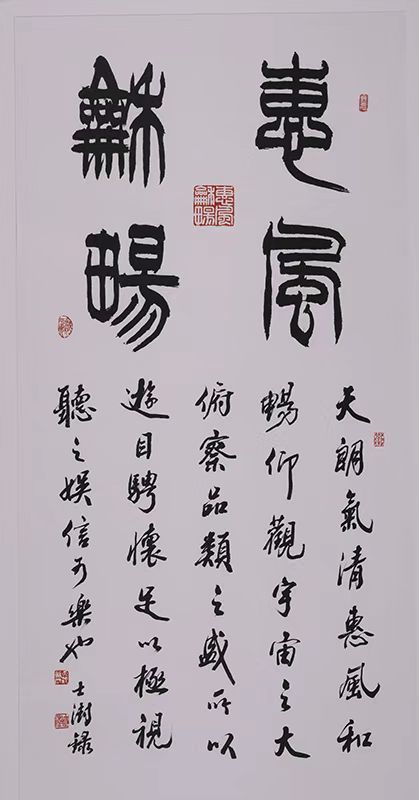 惠風
龢畼
惠風龢畼
天朗氣清惠風和
暢仰觀宇宙之大
俯察品類之盛所以
遊目騁懷足以極視
聽之娛信可樂也 士澍錄